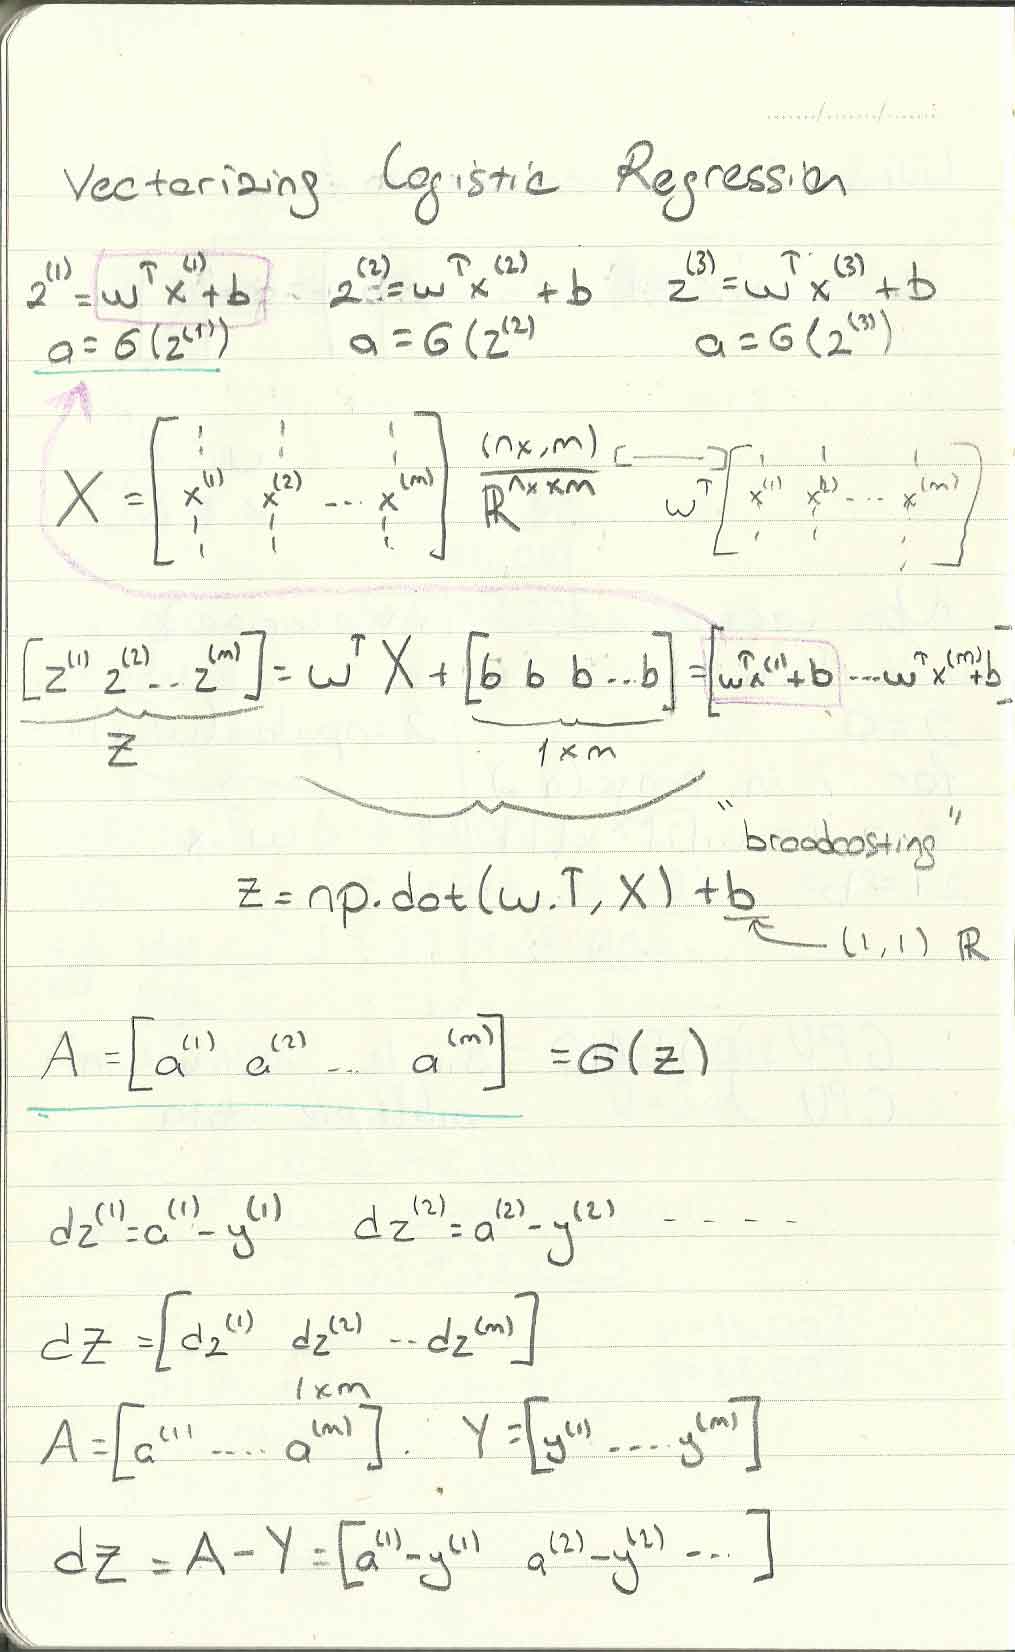 Vectorizing Logistic Regression
z⁽¹⁾ = wᵀx⁽¹⁾ + b    z⁽²⁾ = wᵀx⁽²⁾ + b    z⁽³⁾ = wᵀx⁽³⁾ + b
a = σ(z⁽¹⁾)    a = σ(z⁽²⁾    a = σ(z⁽³⁾)
X = [x⁽¹⁾ x⁽²⁾ ... x⁽ᵐ⁾]    (nx, m)    ℝ^(nx × m)    wᵀ[x⁽¹⁾ x⁽²⁾ ... x⁽ᵐ⁾]
[z⁽¹⁾ z⁽²⁾ ... z⁽ᵐ⁾] = wᵀX + [b b b ... b] = [wᵀx⁽¹⁾+b ... wᵀx⁽ᵐ⁾+b]
Z    1×m
"broadcasting"
z = np.dot(w.T, X) + b
(1,1) ℝ
A = [a⁽¹⁾ a⁽²⁾ ... a⁽ᵐ⁾] = σ(z)
dz⁽¹⁾ = a⁽¹⁾ - y⁽¹⁾    dz⁽²⁾ = a⁽²⁾ - y⁽²⁾ - - - -
dZ = [dz⁽¹⁾ dz⁽²⁾ ... dz⁽ᵐ⁾]
1×m
A = [a⁽¹⁾ .... a⁽ᵐ⁾].    Y = [y⁽¹⁾ .... y⁽ᵐ⁾]
dz = A - Y = [a⁽¹⁾ - y⁽¹⁾ a⁽²⁾ - y⁽²⁾ ...]